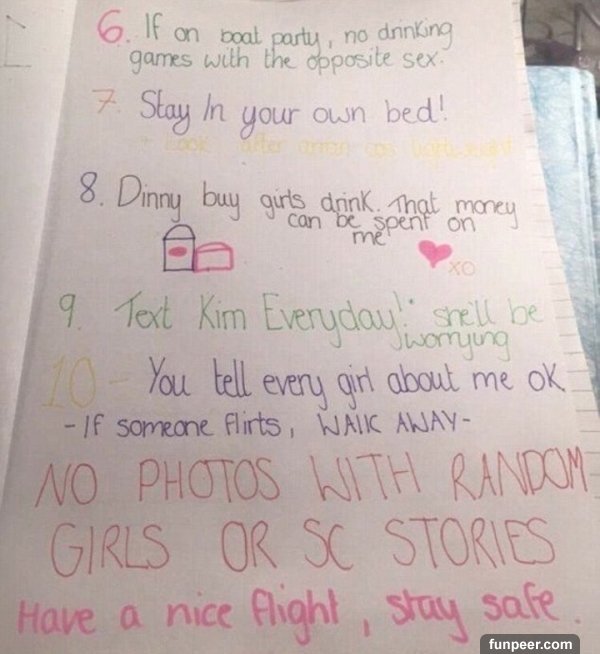 6. If on boat party, no drinking
games with the opposite sex.
7. Stay In your own bed!
+ Look after cos lightweight
8. Dinny buy girls drink. That money
can be spent on
me
XO
9. Text Kim Everyday! she'll be
worrying
10 - You tell every girl about me OK
- If someone flirts, WALK AWAY-
NO PHOTOS WITH RANDOM
GIRLS OR SC STORIES
Have a nice flight, stay safe.
funpeer.com